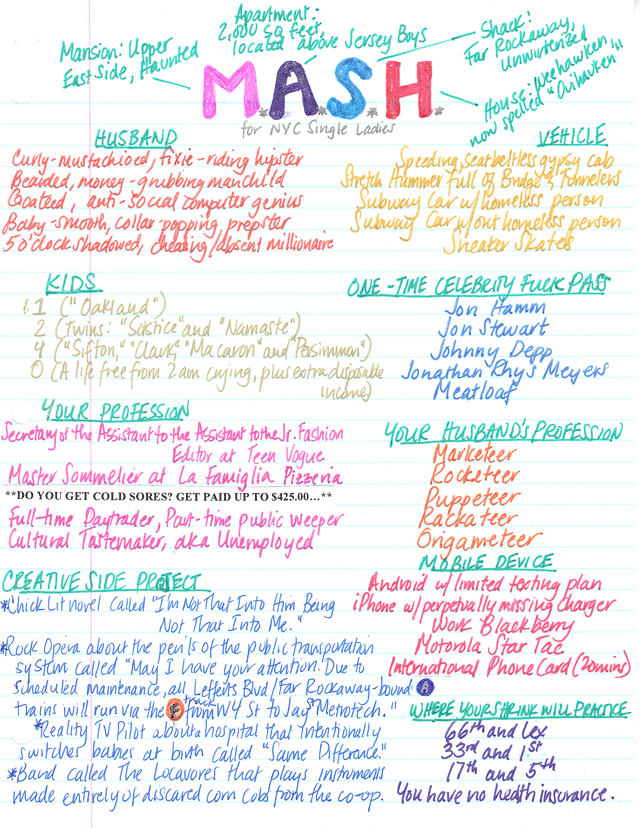 Mansion: Upper
East Side, Haunted
Apartment:
2,000 sq feet,
located above Jersey Boys
Shack:
Far Rockaway,
Unwinterized
House: Weehawken,
now spelled "Ouihavken"
M.A.S.H.
for NYC Single Ladies
HUSBAND
Curly-mustachioed, fixie-riding hipster
Bearded, money-grubbing manchild
Goateed, anti-social computer genius
Baby-smooth, collar-popping, prepster
5 o'clock shadowed, cheating/absent millionaire
VEHICLE
Speeding, seatbeltless gypsy cab
Stretch Hummer full of Bridge & Tunnelers
Subway Car w/homeless person
Subway Car w/out homeless person
Sneaker Skates
KIDS
1 ("Oakland")
2 (Twins: "Solstice" and "Namaste")
4 ("Sifton," "Clark," "Macaron" and "Persimman")
0 (A life free from 2am crying, plus extra disposable
income)
ONE-TIME CELEBRITY FUCK PASS
Jon Hamm
Jon Stewart
Johnny Depp
Jonathan Rhys Meyers
Meatloaf
YOUR PROFESSION
Secretary of the Assistant to the Assistant to the Jr. Fashion
Editor at Teen Vogue
Master Sommelier at La Famiglia Pizzeria
**DO YOU GET COLD SORES? GET PAID UP TO $425.00...**
Full-time Daytrader, Part-time public weeper
Cultural Tastemaker, aka Unemployed
YOUR HUSBAND'S PROFESSION
Marketeer
Rocketeer
Puppeteer
Rackateer
Origameteer
MOBILE DEVICE
Android w/limited texting plan
iPhone w/perpetually missing charger
Work Blackberry
Motorola Star Tac
International Phone Card (20mins)
CREATIVE SIDE PROJECT
*Chick Lit novel called "I'm Not That Into Him Being
Not That Into Me."
*Rock Opera about the perils of the public transportation
system called "May I have your attention. Due to
scheduled maintenance, all Lefferts Blvd/Far Rockaway-bound A
trains will run via the F track from W4 St to Jay St Metrotech."
*Reality TV Pilot about a hospital that intentionally
switches babies at birth called "Same Difference."
*Band called The Locavores that plays instruments
made entirely of discared corn cobs from the co-op.
WHERE YOUR SHRINK WILL PRACTICE
66th and Lex
33rd and 1st
17th and 5th
You have no health insurance.